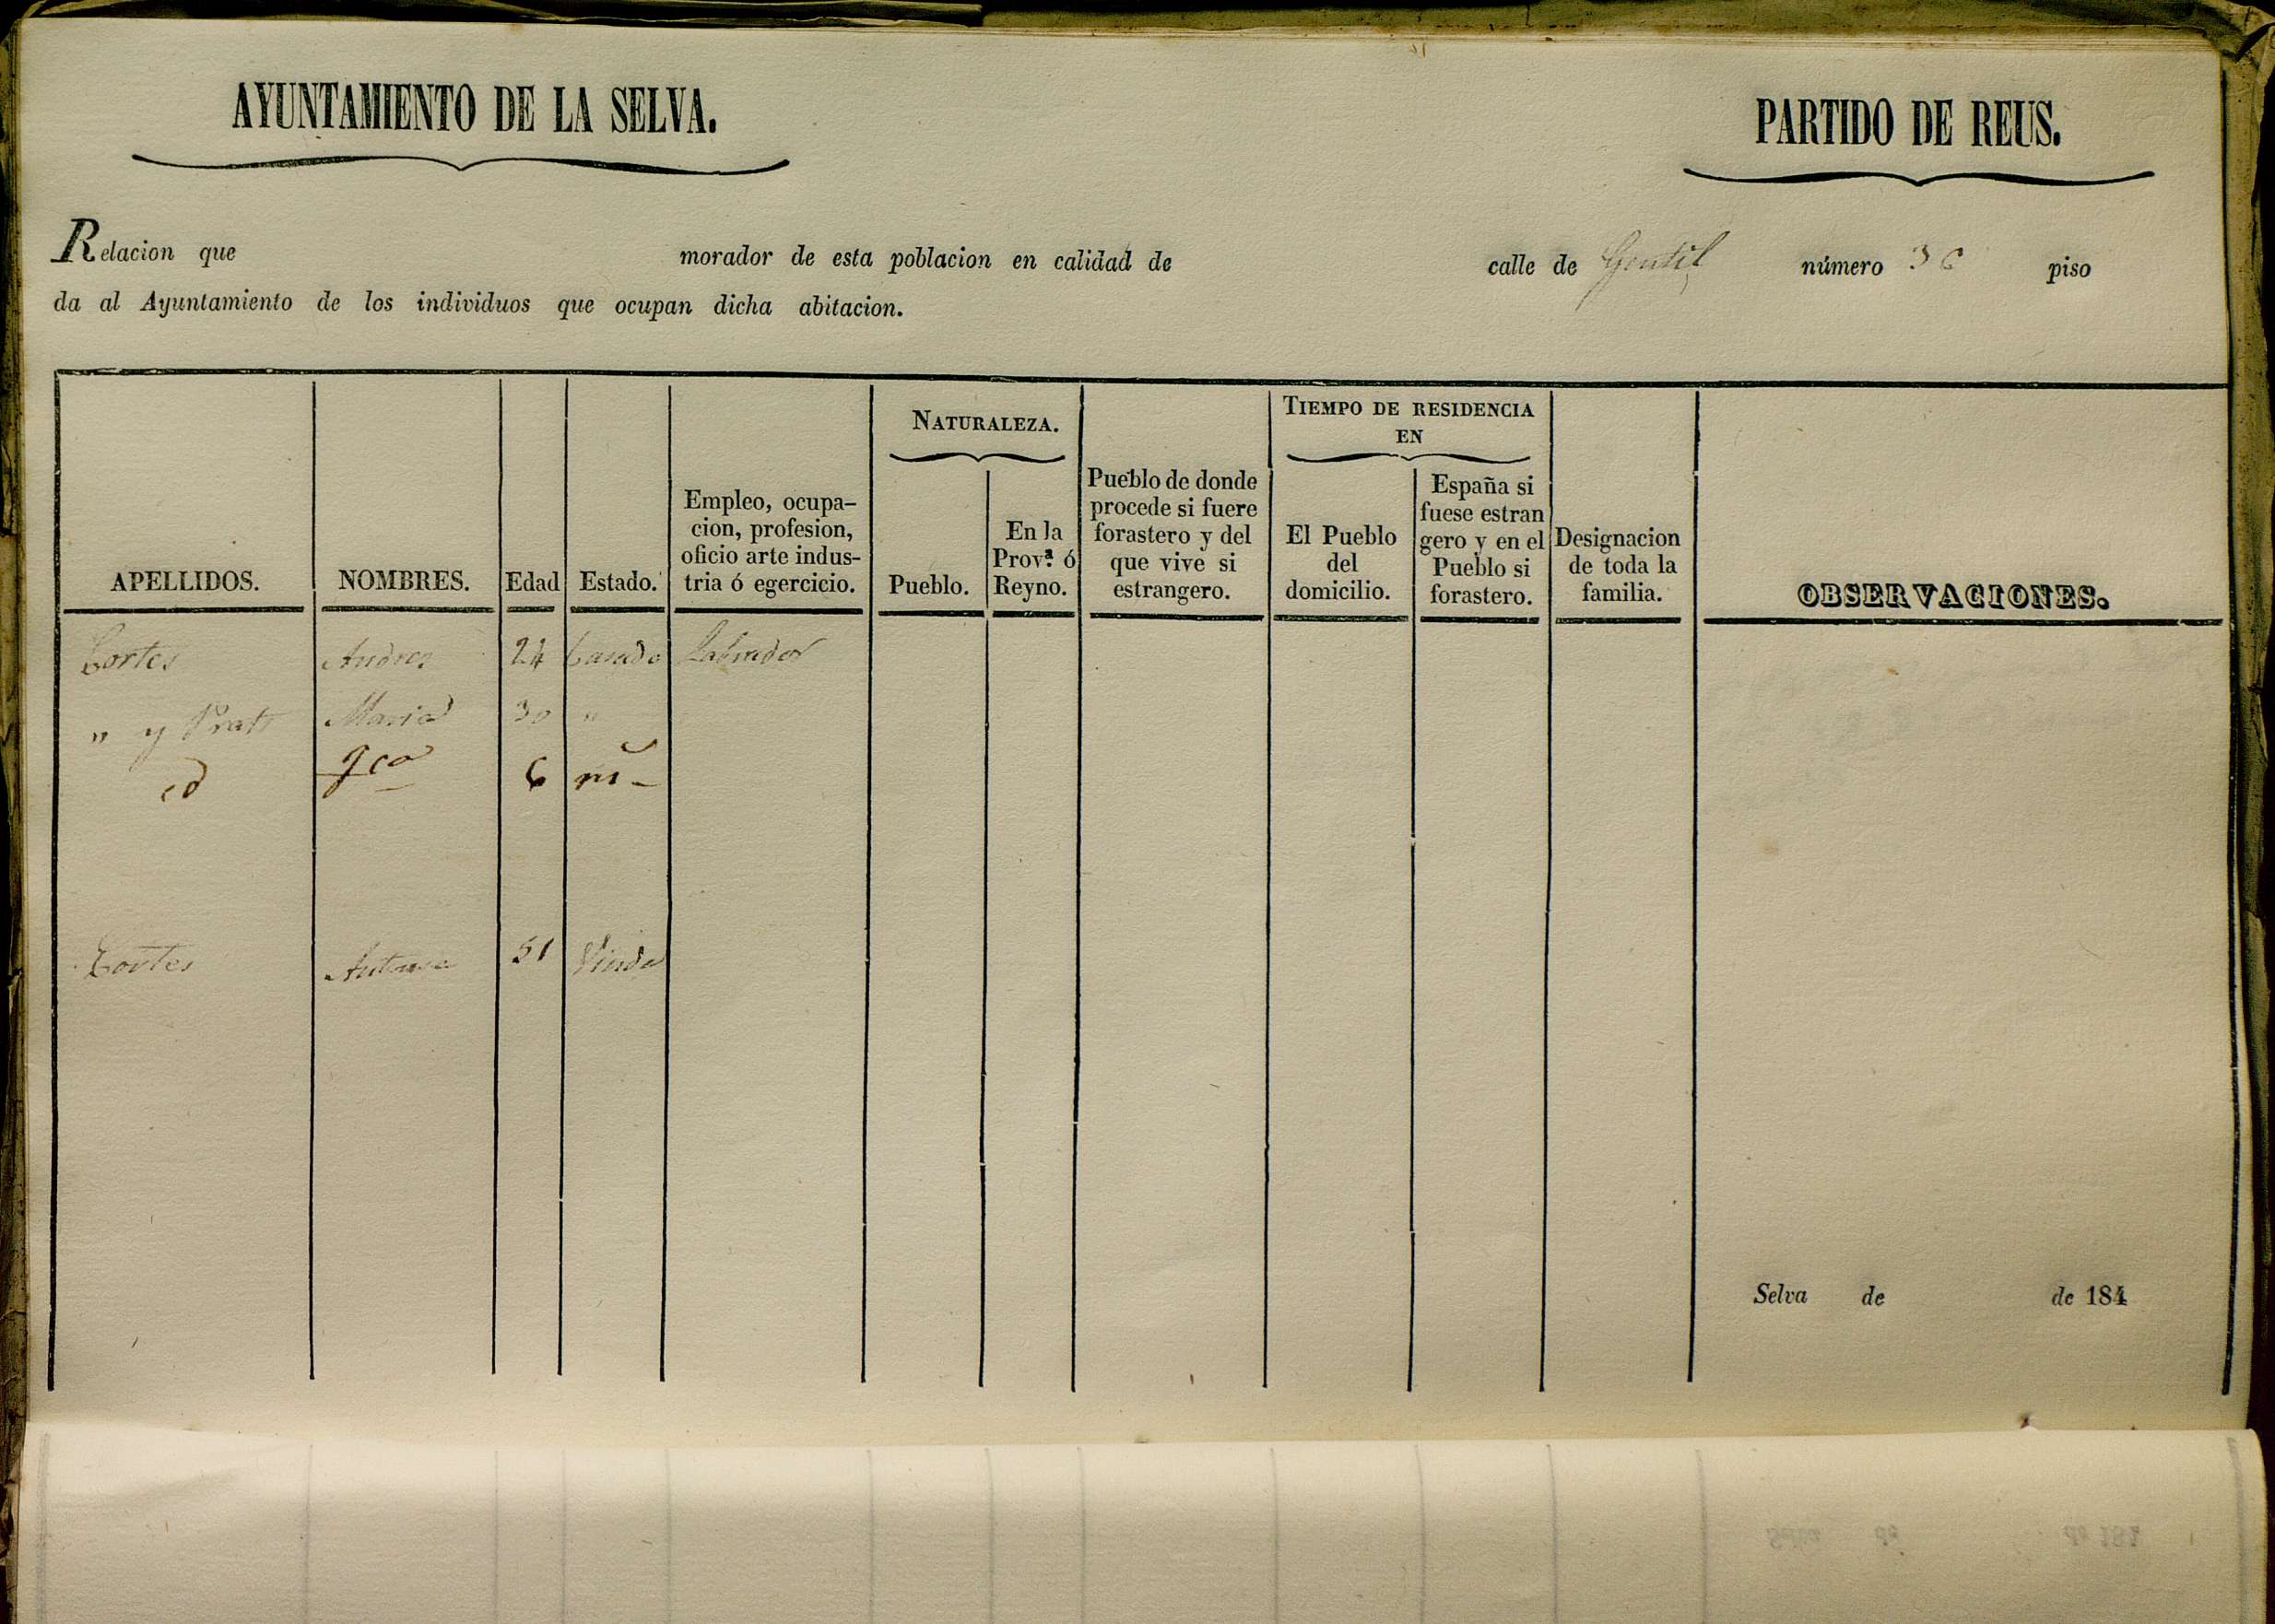 AYUNTAMIENTO DE LA SELVA.
PARTIDO DE REUS.
Relacion que morador de esta poblacion en calidad de calle de Gentil número 36 piso
da al Ayuntamiento de los individuos que ocupan dicha abitacion.
NATURALEZA.
TIEMPO DE RESIDENCIA
EN
APELLIDOS.
NOMBRES.
Edad
Estado.
Empleo, ocupa-
cion, profesion,
oficio arte indus-
tria ó egercicio.
Pueblo.
En la
Prov.ª ó
Reyno.
Pueblo de donde
procede si fuere
forastero y del
que vive si
estrangero.
El Pueblo
del
domicilio.
España si
fuese estran
gero y en el
Pueblo si
forastero.
Designacion
de toda la
familia.
OBSERVACIONES.
Cortes Andres 24 Casado Labrador
" y Prats Maria 30 "
id 6
Cortes Antonia 51 Viuda
Selva de de 184